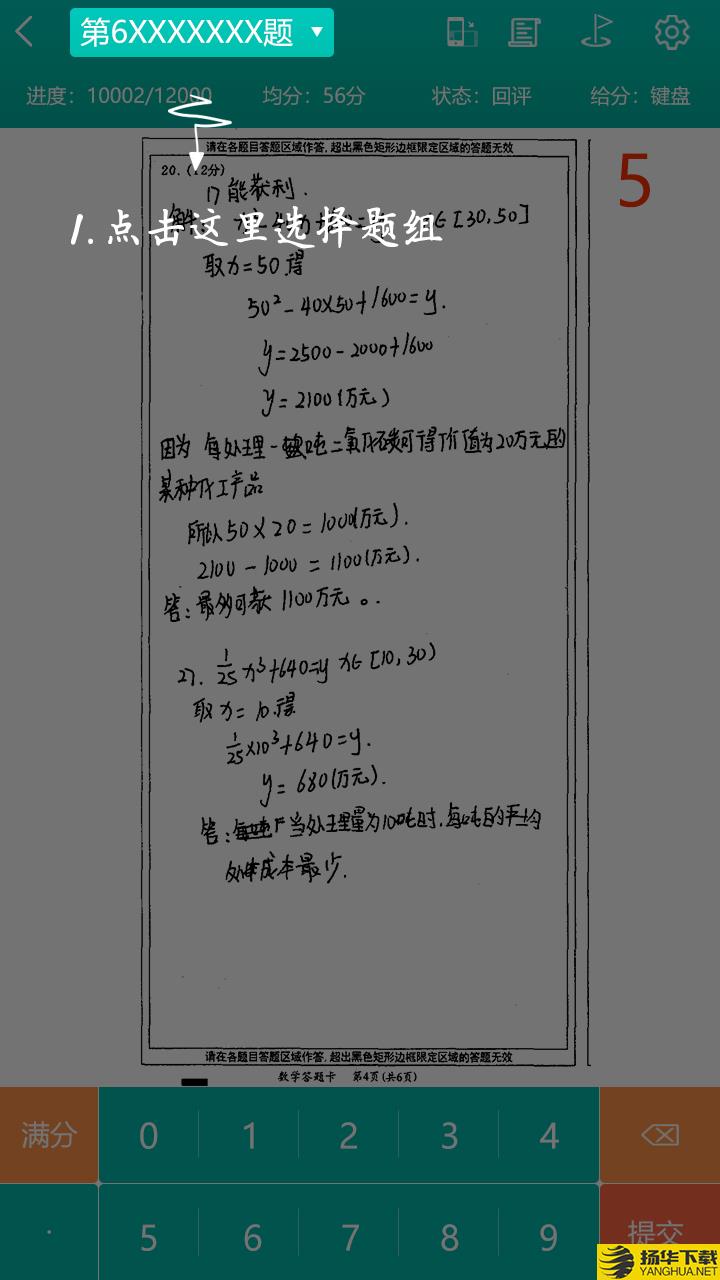 第6XXXXXXX题
进度：10002/12000 均分：56分 状态：回评 给分：键盘
请在各题目答题区域作答，超出黑色矩形边框限定区域的答题无效
5
20.（12分）
1) 能获利.
1.点击这里选择题组
∈[30,50]
取x=50得
50²-40×50+1600=y.
y=2500-2000+1600
y=2100(万元)
因为 每处理一吨二氧化碳可得价值为20万元的
某种化工产品
所以50×20=1000(万元).
2100-1000=1100(万元).
答:最多可获1100万元。.
2). 1/25x³+640=y x∈[10,30)
取x=10得
1/25×10³+640=y.
y=680(万元).
答: 当处理量为10吨时,每吨的平均
成本最少.
请在各题目答题区域作答，超出黑色矩形边框限定区域的答题无效
数学答题卡 第4页(共6页)
满分 0 1 2 3 4
. 5 6 7 8 9 提交
扬华下载
YANGHUA.NET